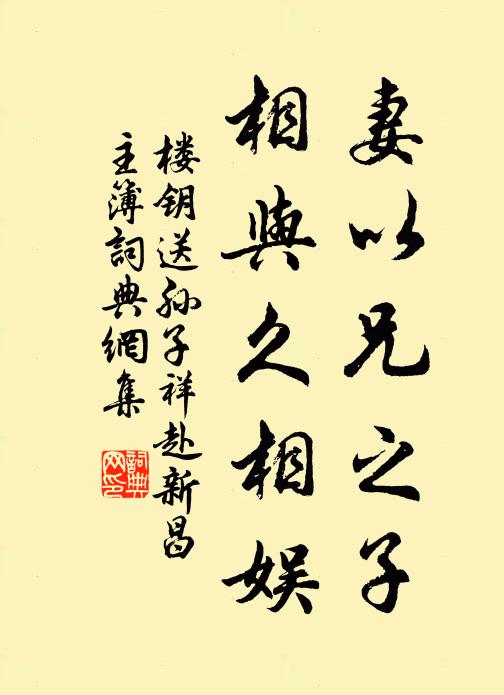 妻以兄之子
相與久相娱
楼钥送孙子祥赴新昌
主簿詞典網集
詞典網印